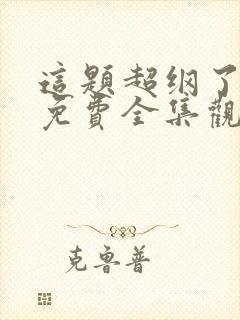 這題超纲了
免費全集觀
克魯普